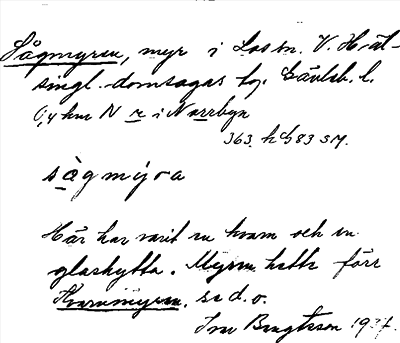 Sågmyren, myr i Los sn. V. Häl-
singl. domsagas tg. Gävleb. l.
0,4 km N r i Norrbyn
363 h G 83 SM.
sàgmýra
Här har varit en kvarn och en
glashytta. Myren hette förr
Kvarnmyren, se d. o.
Ivar Bengtsson 1937.